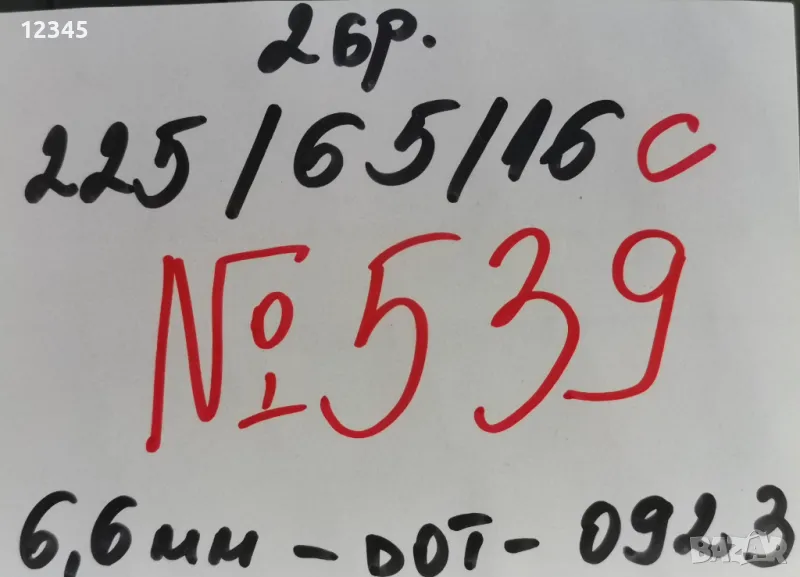 12345
2бр.
225/65/16 C
№ 539
6,6мм - DOT - 0923
BAZAR